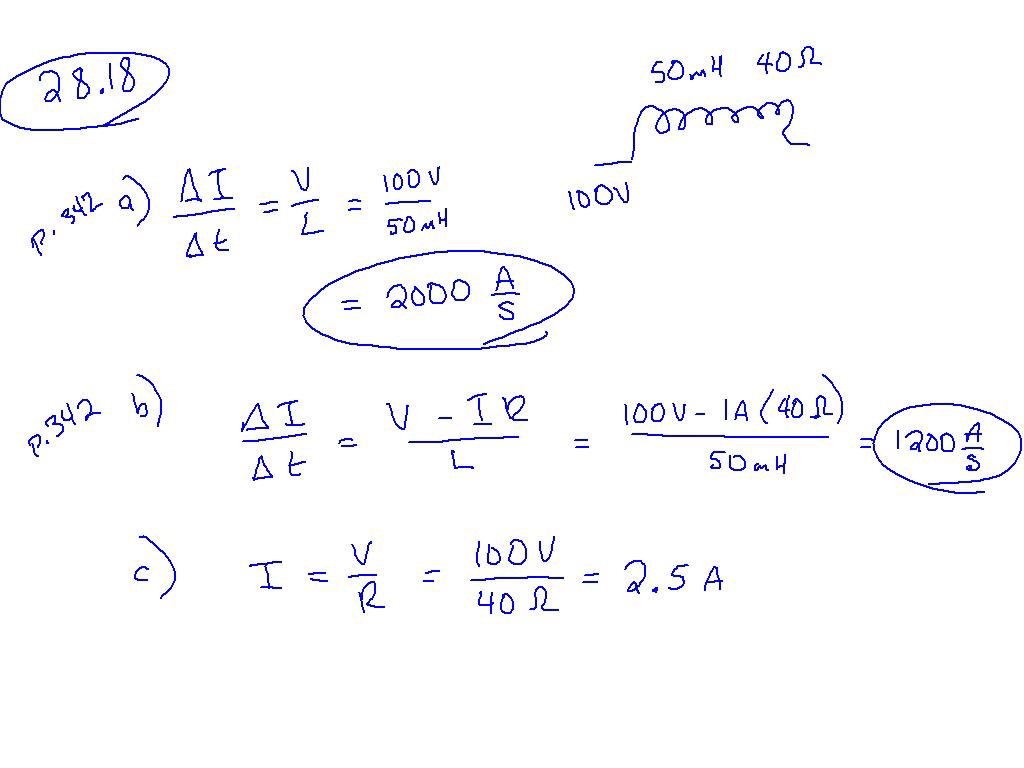 28.18
50mH 40Ω
100V
p.342 a) ΔI/Δt = V/L = 100V/50mH
= 2000 A/S
p.342 b) ΔI/Δt = V - IR/L = 100V - 1A(40Ω)/50mH = 1200 A/S
c) I = V/R = 100V/40Ω = 2.5 A